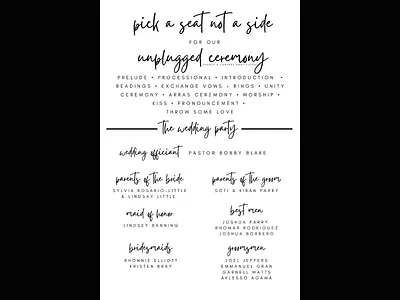 pick a seat not a side
FOR OUR
unplugged ceremony
PRELUDE • PROCESSIONAL • INTRODUCTION •
READINGS • EXCHANGE VOWS • RINGS • UNITY
CEREMONY • ARRAS CEREMONY • WORSHIP •
KISS • PRONOUNCEMENT •
THROW SOME LOVE
the wedding party
wedding officiant PASTOR BOBBY BLAKE
parents of the bride
SYLVIA ROSARIO-LITTLE
& LINDSAY LITTLE
parents of the groom
SOTI & KIRAN PARRY
maid of honor
LINDSEY BANNING
best men
JOSHUA PARRY
RHOMAR RODRIGUEZ
JOSHUA BORRERO
bridesmaids
RHONNIE ELLIOTT
KRISTEN BRAY
groomsmen
JOEL JEFFERS
EMMANUEL ORAN
GARNELL WATTS
AKLESSO AGAWA